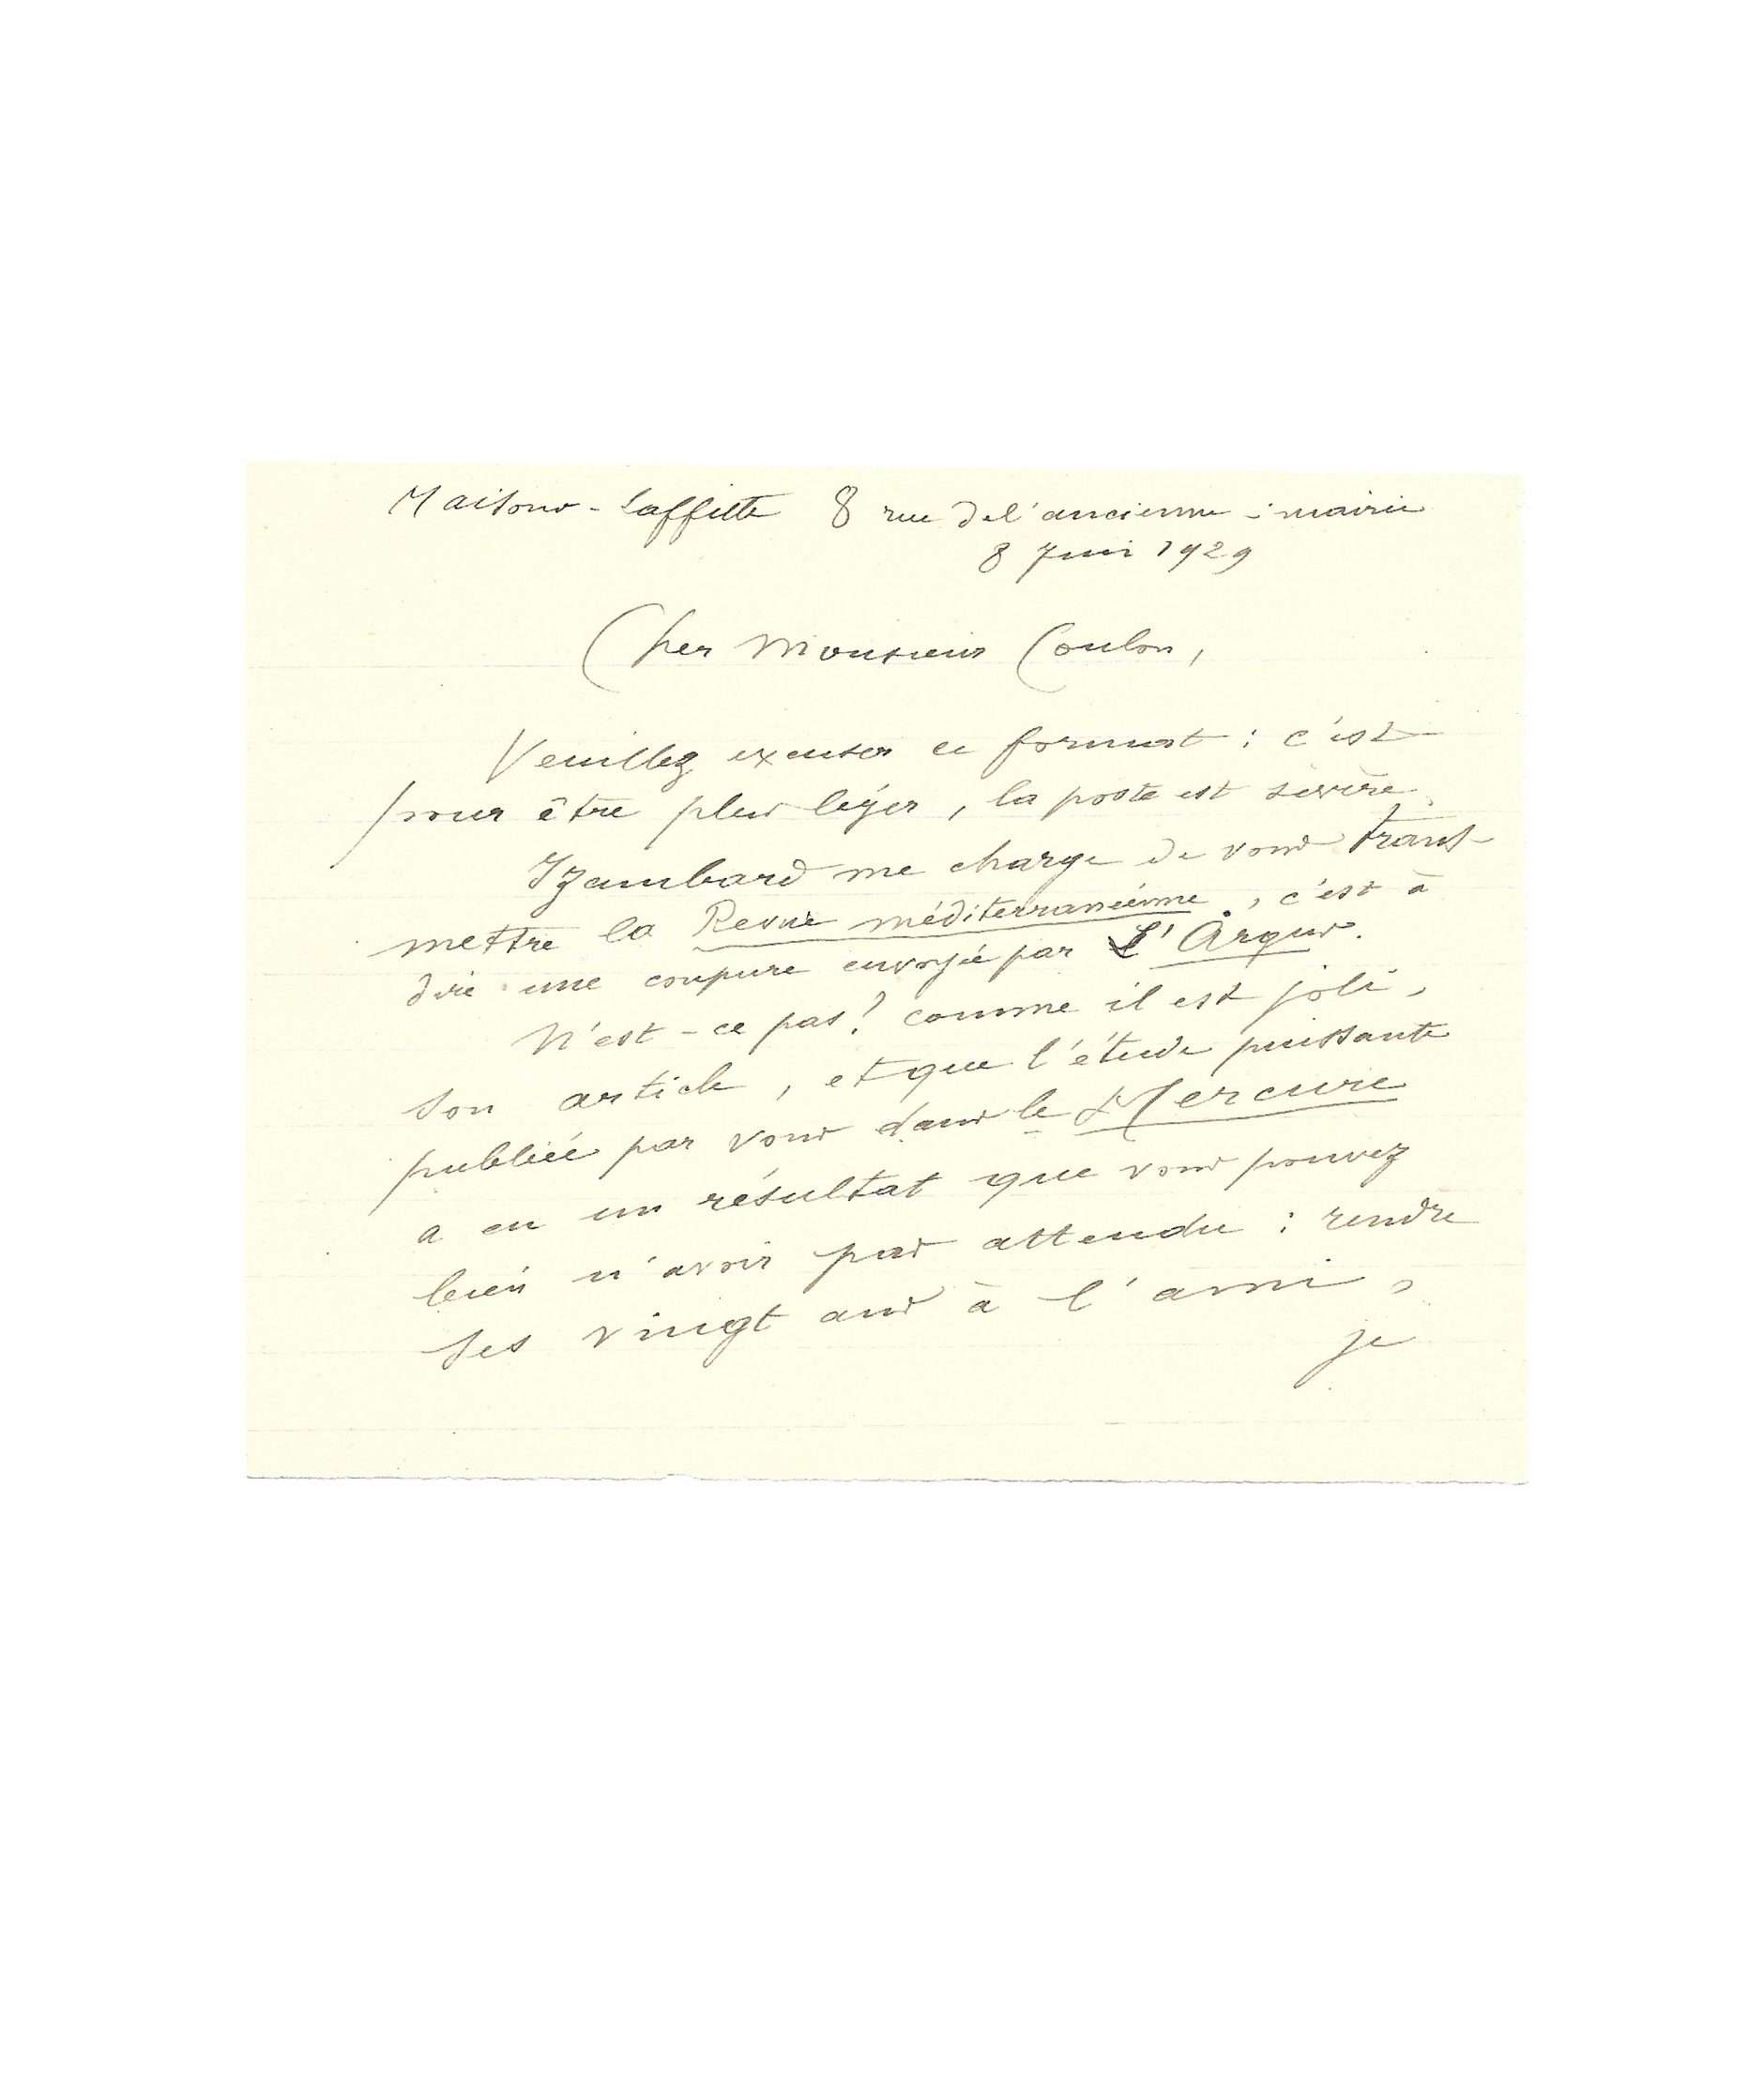 Maisons-Laffitte 8 rue de l'ancienne-mairie
8 Juin 1929
Cher Monsieur Coulon,
Veuillez excuser ce format : c'est
pour être plus léger, la poste est sévère.
Izambard me charge de vous trans-
mettre la Revue méditerranéenne, c'est à
dire une coupure envoyée par L'Argus.
N'est-ce pas ? comme il est joli,
son article, et que l'étude puissante
publiée par vous dans le Mercure
a eu un résultat que vous pouvez
bien n'avoir pas attendu : rendre
ses vingt ans à l'ami,
je